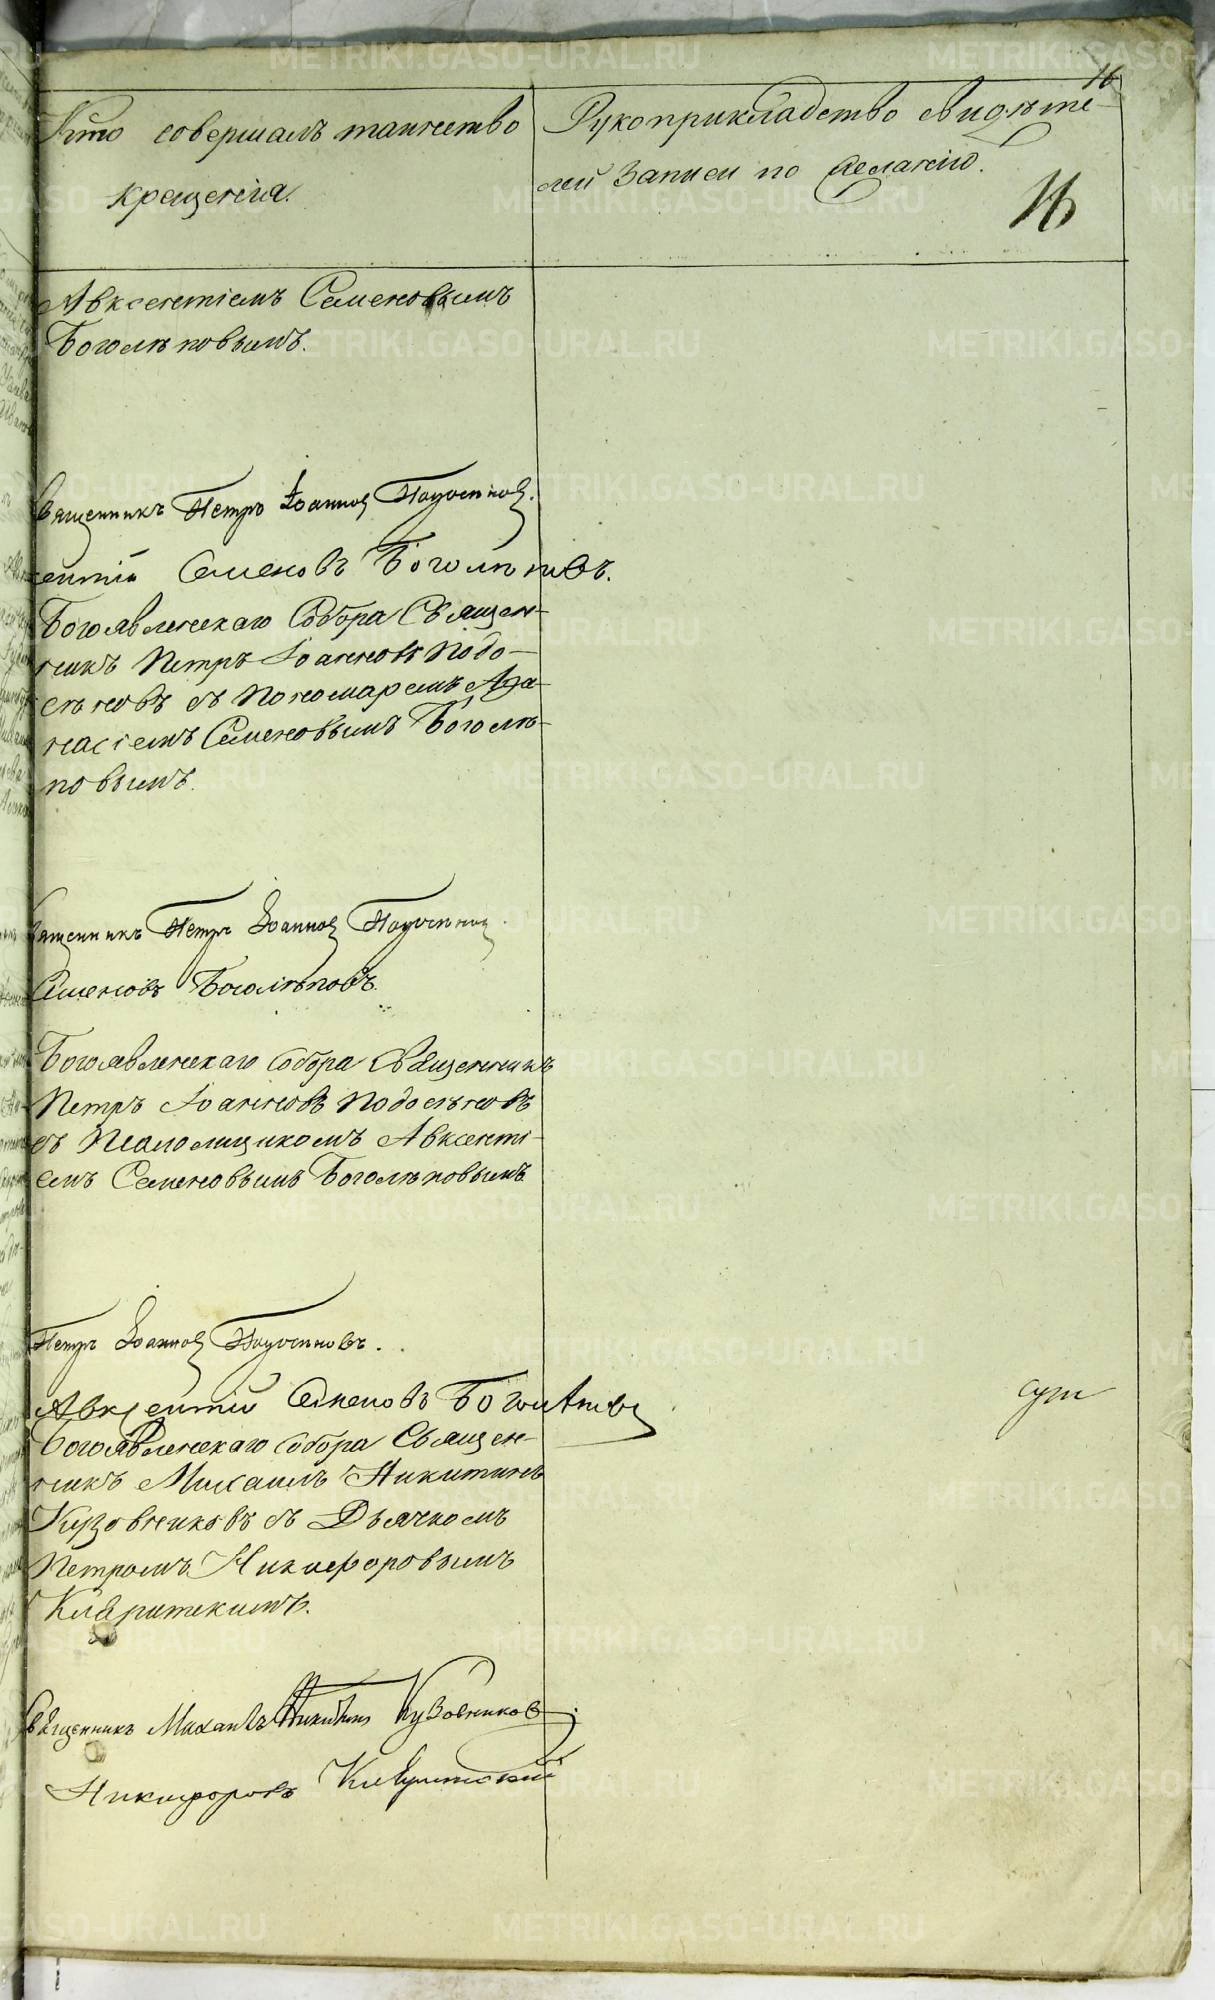 16
Кто совершалъ таинство
крещенія.
Рукоприкладство свидѣте-
лей записи по желанію.
16
Авксентіемъ Семеновымъ
Боголѣповымъ.
Священникъ Петръ Іоанновъ Подосеновъ.
Семеновъ Боголѣповъ.
Богоявленскаго Собора Священ-
никъ Петръ Іоанновъ Подо-
сеновъ съ Пономаремъ Афа-
насіемъ Семеновымъ Боголѣ-
повымъ.
Священникъ Петръ Іоанновъ
Семеновъ Боголѣповъ.
Богоявленскаго Собора Священникъ
Петръ Іоанновъ Подосеновъ
съ Псаломщикомъ Авксенті-
емъ Семеновымъ Боголѣповымъ
Петръ Іоанновъ
Авксентій Семеновъ Боголѣповъ
Богоявленскаго Собора Священ-
никъ Михаилъ Никитинъ
Кузовниковъ съ Дьячкомъ
Петромъ Никифоровымъ
Священникъ Михаилъ Никитинъ Кузовниковъ.
Никифоровъ
METRIKI.GASO-URAL.RU